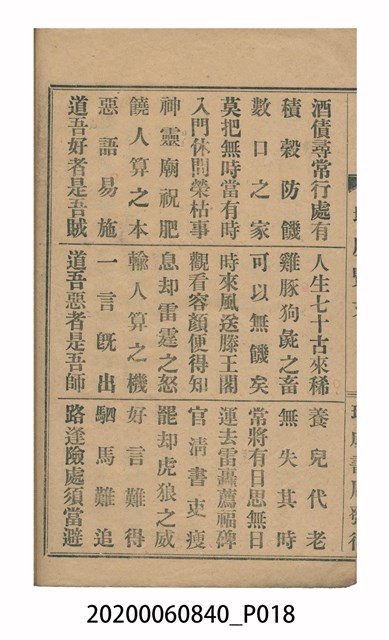 酒債尋常行處有 人生七十古來稀 養兒代老
積穀防饑 雞豚狗彘之畜 無失其時
數口之家 可以無饑矣 常將有日思無日
莫把無時當有時 時來風送滕王閣 運去雷轟薦福碑
入門休問榮枯事 觀看容顏便得知 官清書吏瘦
神靈廟祝肥 息却雷霆之怒 罷却虎狼之威
饒人算之本 輸人算之機 好言難得
惡語易施 一言旣出 駟馬難追
道吾好者是吾賊 道吾惡者是吾師 路逢險處須當避
20200060840_P018